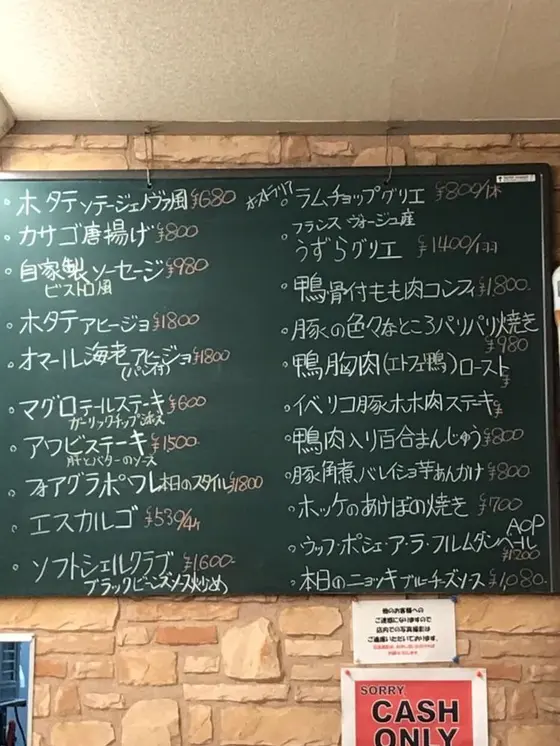 ホタテソテージェノヴァ風 ¥680
カサゴ唐揚げ ¥800
自家製ソーセージ ¥980
ビストロ風
ホタテアヒージョ ¥1800
オマール海老アヒージョ ¥1800
(パン付)
マグロテールステーキ ¥600
ガーリックチップ添え
アワビステーキ ¥1500-
肝とバターのソース
フォアグラポワレ本日のスタイル ¥1800
エスカルゴ ¥530/4ヶ
ソフトシェルクラブ ¥1600-
ブラックビーンズソース炒め
オーストラリア ラムチョップグリエ ¥800/1本
フランス ヴォージュ産
うずらグリエ ¥1400/1羽
鴨骨付もも肉コンフィ ¥1800-
豚の色々なところパリパリ焼き
¥980
鴨胸肉(エトフェ鴨)ロースト ¥
イベリコ豚ホホ肉ステーキ ¥
鴨肉入り百合まんじゅう ¥800
豚角煮、バレイショ芋あんかけ ¥800
ホッケのあけぼの焼き ¥700
AOP
ウッフ・ポシェ・ア・ラ・フルムダンベール
¥1200
本日のニョッキブルーチーズソース ¥1,080-
他のお客様への
ご迷惑になりますので
店内での写真撮影は
ご遠慮いただいております。
SORRY
CASH
ONLY